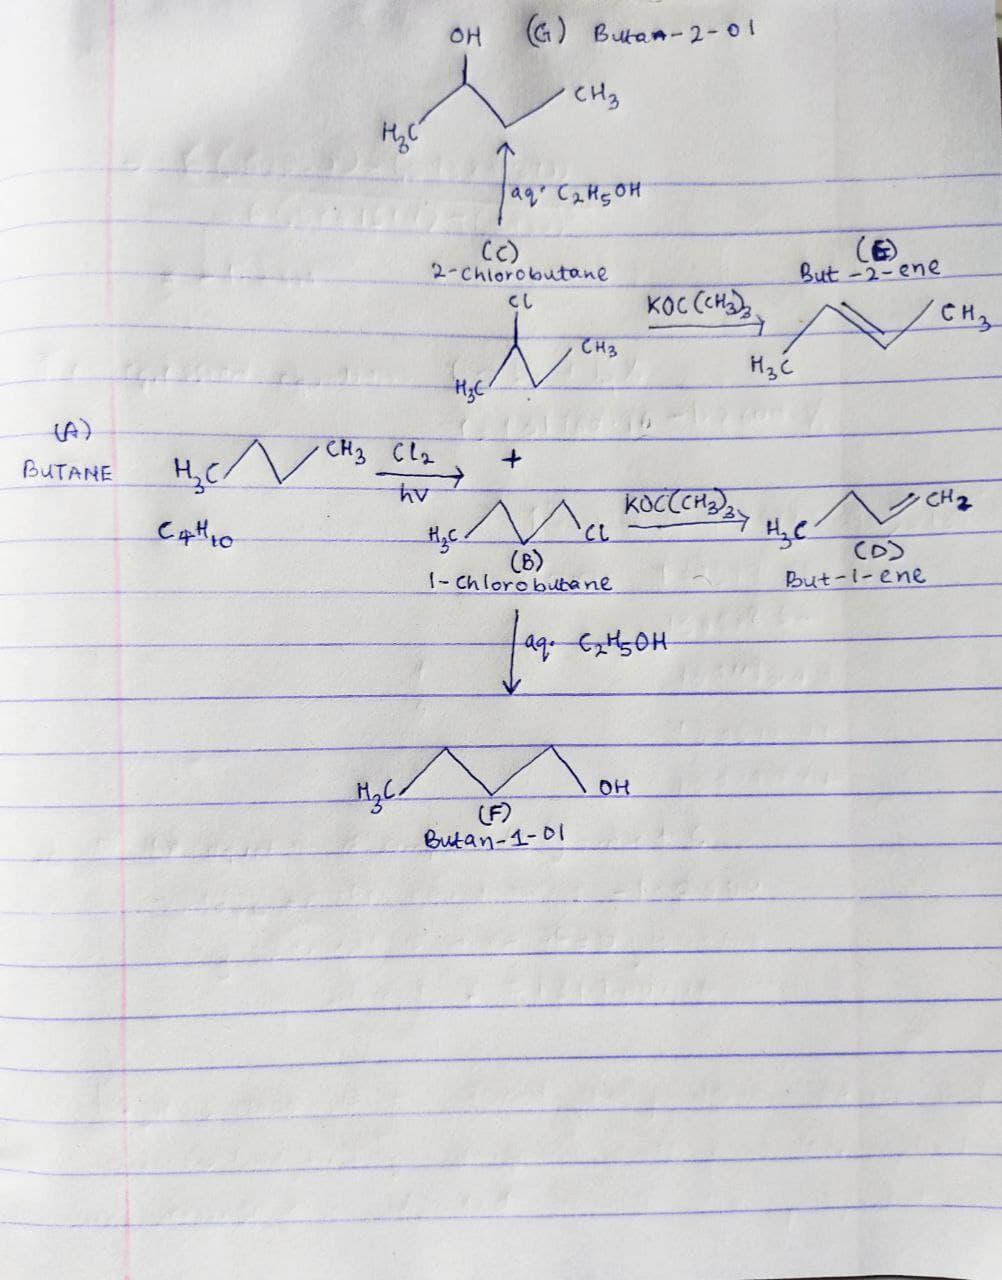 OH (G) Butan-2-ol
CH3
H3C
aq. C2H5OH
(C)
2-chlorobutane
Cl
CH3
H3C
KOC(CH3)3
(E)
But-2-ene
CH3
H3C
(A)
BUTANE
H3C CH3
C4H10
Cl2
hv
+
H3C Cl
(B)
1-chlorobutane
KOC(CH3)3
H3C CH2
(D)
But-1-ene
aq. C2H5OH
H3C OH
(F)
Butan-1-ol